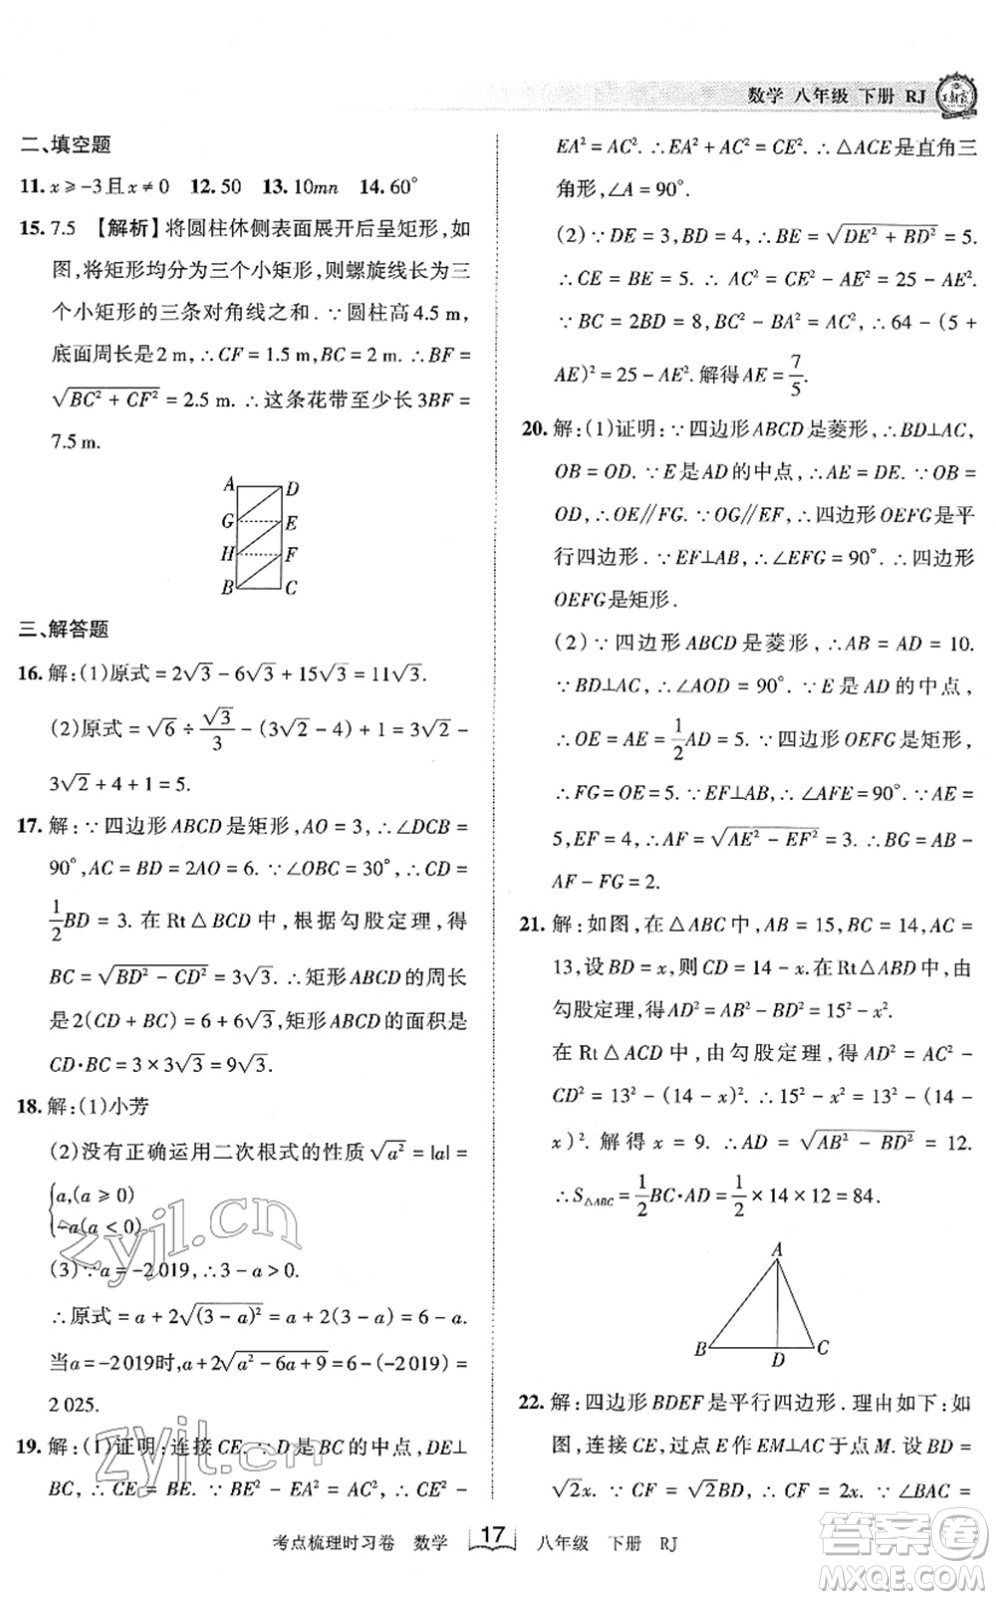 数学 八年级 下册 RJ
二、填空题
11. x≥-3且x≠0 12. 50 13. 10mn 14. 60°
15. 7.5 【解析】将圆柱体侧表面展开后呈矩形,如
图,将矩形均分为三个小矩形,则螺旋线长为三
个小矩形的三条对角线之和. ∵圆柱高4.5 m,
底面周长是2 m,∴CF=1.5 m,BC=2 m. ∴BF=
√(BC²+CF²)=2.5 m. ∴这条花带至少长3BF=
7.5 m.
A D
G E
H F
B C
三、解答题
16. 解:(1)原式=2√3-6√3+15√3=11√3.
(2)原式=√6÷√3/3-(3√2-4)+1=3√2-
3√2+4+1=5.
17. 解:∵四边形ABCD是矩形,AO=3,∴∠DCB=
90°,AC=BD=2AO=6. ∵∠OBC=30°,∴CD=
1/2BD=3. 在Rt△BCD中,根据勾股定理,得
BC=√(BD²-CD²)=3√3. ∴矩形ABCD的周长
是2(CD+BC)=6+6√3,矩形ABCD的面积是
CD·BC=3×3√3=9√3.
18. 解:(1)小芳
(2)没有正确运用二次根式的性质√a²=|a|=
{a,(a≥0)
-a(a<0)
(3)∵a=-2 019,∴3-a>0.
∴原式=a+2√(3-a)²=a+2(3-a)=6-a.
当a=-2 019时,a+2√(a²-6a+9)=6-(-2 019)=
2 025.
19. 解:(1)证明:连接CE. ∵D是BC的中点,DE⊥
BC,∴CE=BE. ∵BE²-EA²=AC²,∴CE²-
EA²=AC². ∴EA²+AC²=CE². ∴△ACE是直角三
角形,∠A=90°.
(2)∵DE=3,BD=4,∴BE=√(DE²+BD²)=5.
∴CE=BE=5. ∴AC²=CE²-AE²=25-AE².
∵BC=2BD=8,BC²-BA²=AC²,∴64-(5+
AE)²=25-AE². 解得AE=7/5.
20. 解:(1)证明:∵四边形ABCD是菱形,∴BD⊥AC,
OB=OD. ∵E是AD的中点,∴AE=DE. ∵OB=
OD,∴OE∥FG. ∵OG∥EF,∴四边形OEFG是平
行四边形. ∵EF⊥AB,∴∠EFG=90°. ∴四边形
OEFG是矩形.
(2)∵四边形ABCD是菱形,∴AB=AD=10.
∵BD⊥AC,∴∠AOD=90°. ∵E是AD的中点,
∴OE=AE=1/2AD=5. ∵四边形OEFG是矩形,
∴FG=OE=5. ∵EF⊥AB,∴∠AFE=90°. ∵AE=
5,EF=4,∴AF=√(AE²-EF²)=3. ∴BG=AB-
AF-FG=2.
21. 解:如图,在△ABC中,AB=15,BC=14,AC=
13,设BD=x,则CD=14-x. 在Rt△ABD中,由
勾股定理,得AD²=AB²-BD²=15²-x².
在Rt△ACD中,由勾股定理,得AD²=AC²-
CD²=13²-(14-x)². ∴15²-x²=13²-(14-
x)². 解得x=9. ∴AD=√(AB²-BD²)=12.
∴S△ABC=1/2BC·AD=1/2×14×12=84.
A
B D C
22. 解:四边形BDEF是平行四边形. 理由如下:如
图,连接CE,过点E作EM⊥AC于点M. 设BD=
√2x. ∵CF=√2BD,∴CF=2x. ∵∠BAC=
考点梳理时习卷 数学 17 八年级 下册 RJ
zyjl.cn
zyjl.cn
答案圈
MXQE.COM